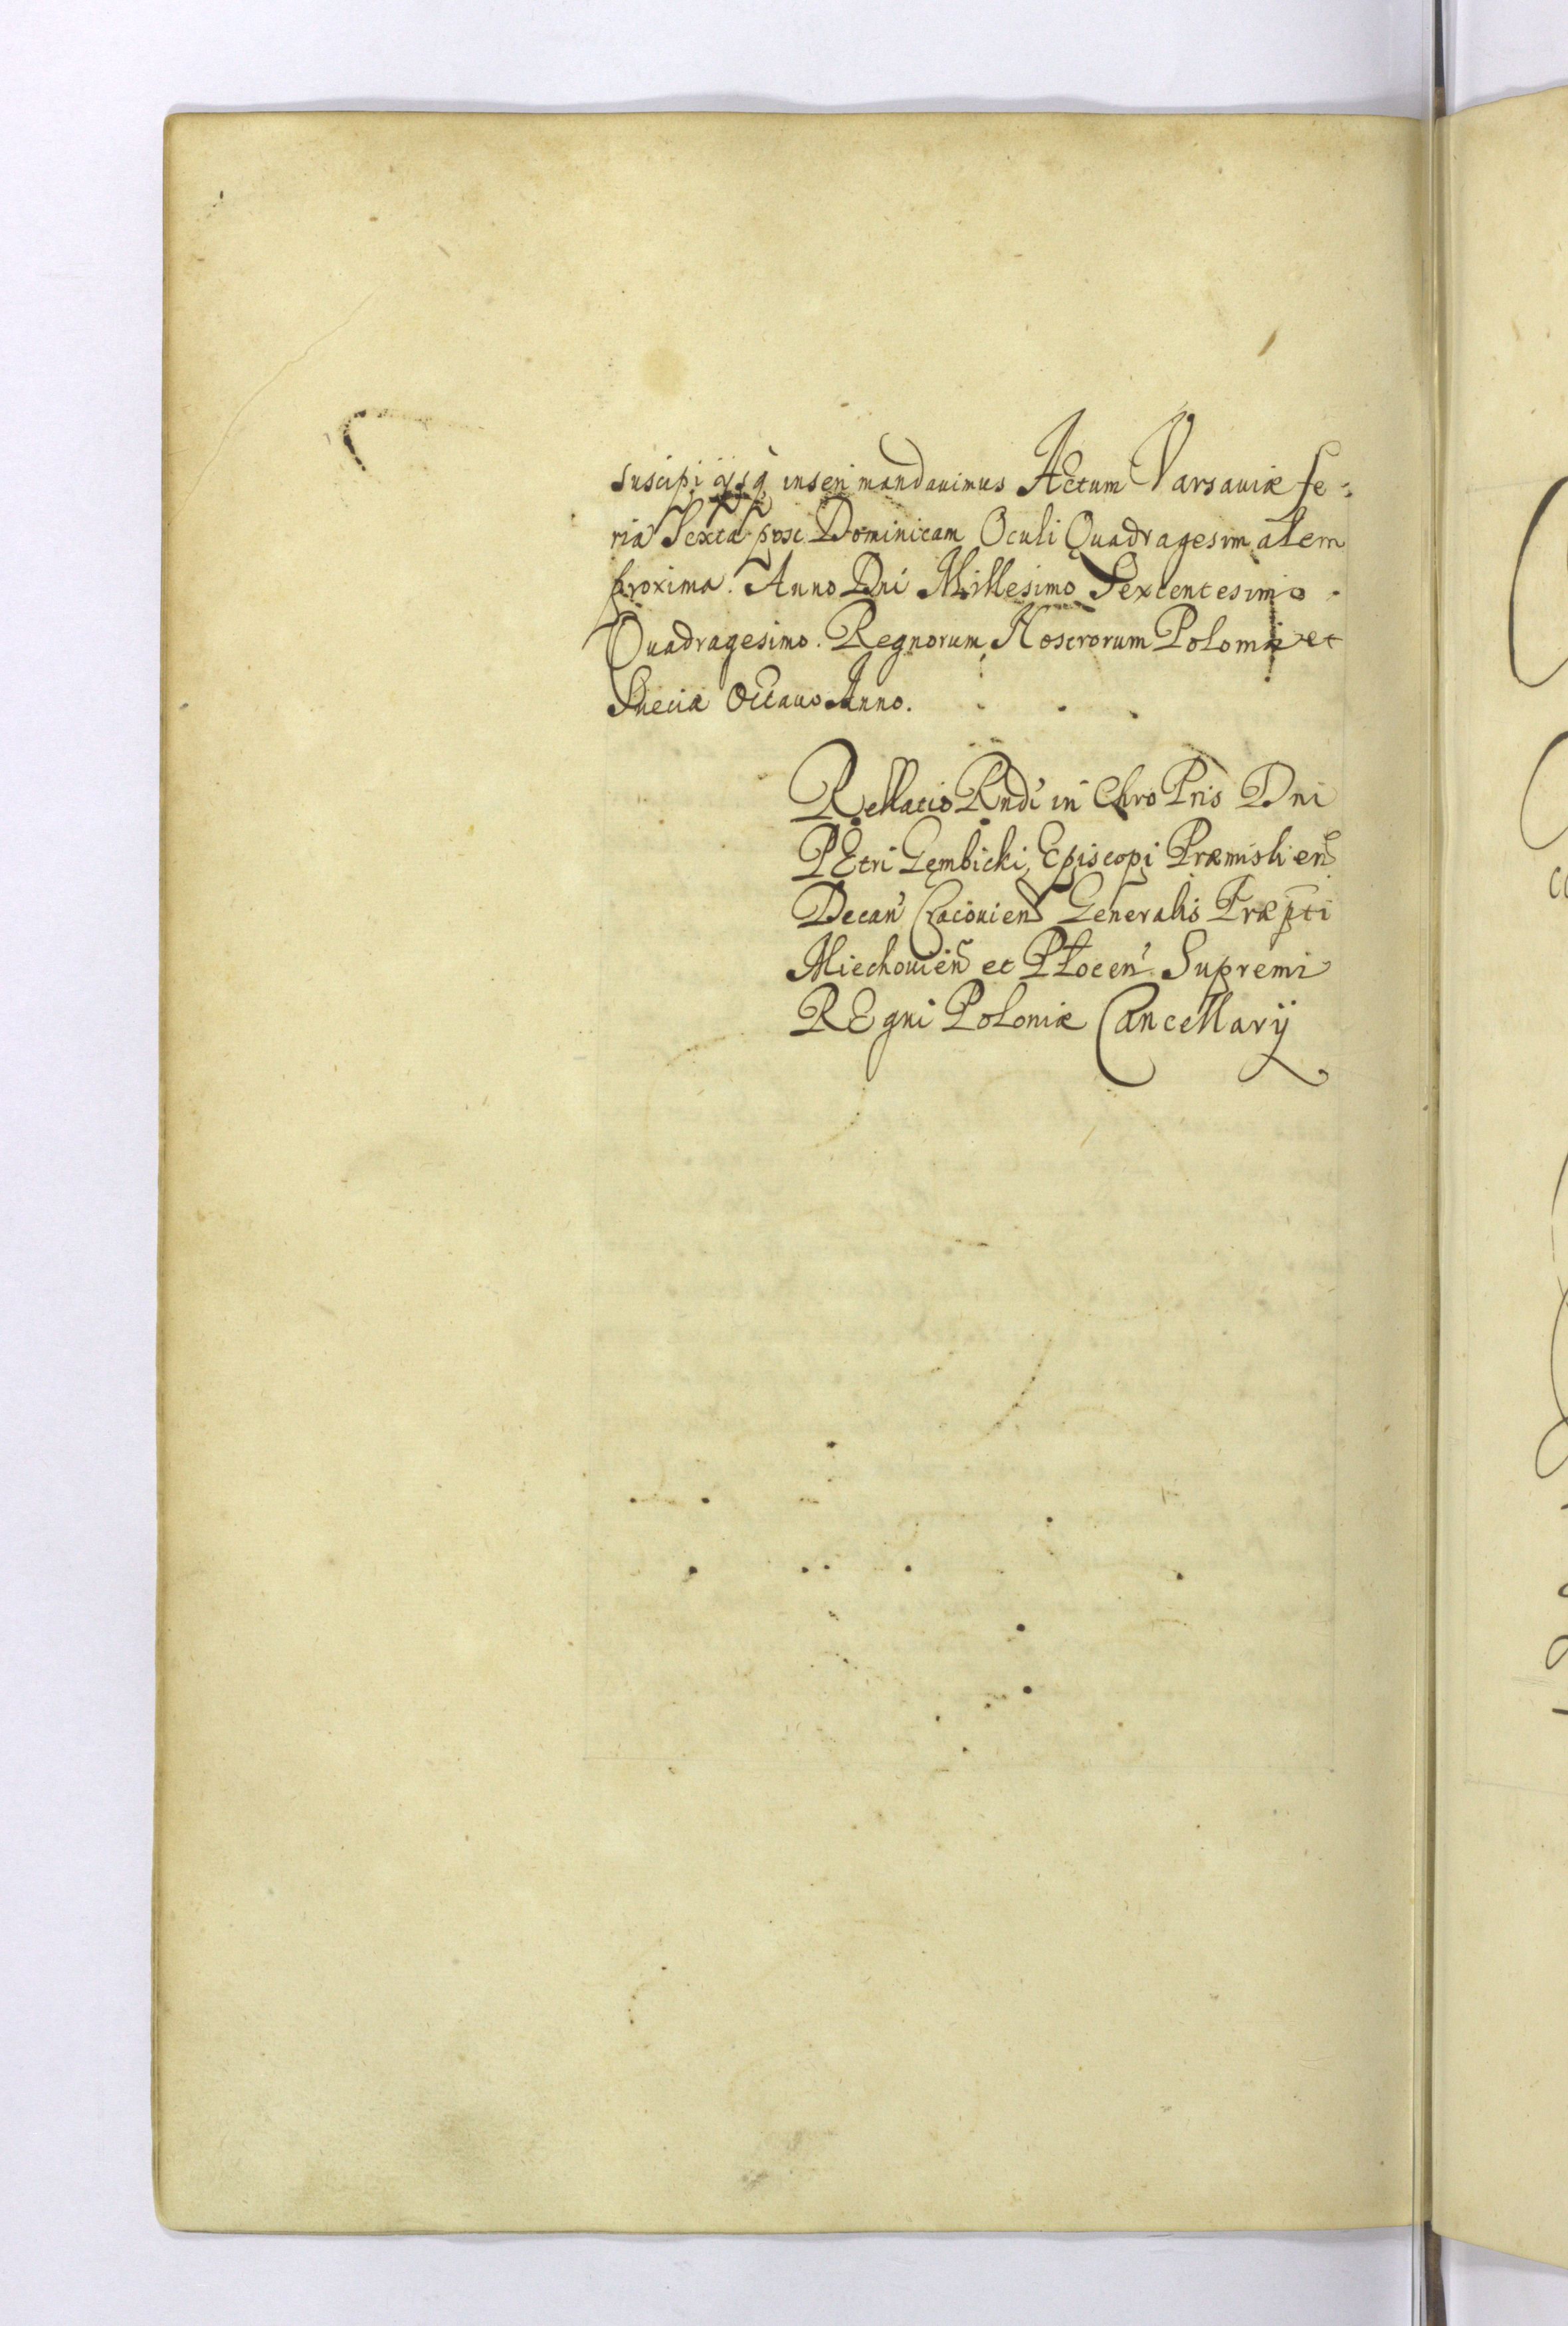 suscipi ijsq̃ inseri mandauimus Actum Varsauiæ fe-
ria Sexta post Dominicam Oculi Quadragesimalem
proxima. Anno Dni Millesimo Sexcentesimo
Quadragesimo. Regnorum Nostrorum Poloniæ et
Sueciæ Octauo Anno.
Rellatio Rndi in Chro Pris Dni
PEtri Gembicki, Episcopi Præmislien
Decan Cracouien Generalis Præpti
Miechouien et Płocen Supremi
REgni Poloniæ Cancellarij